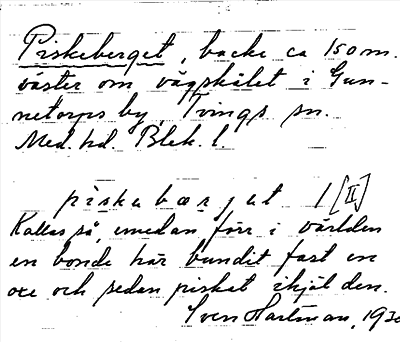 Piskeberget, backe ca 150 m.
väster om vägskälet i Gun-
netorps by, Tvings sn.
Med. hd. Blek. l.
piskabærjet 1 [II]
Kallas så, emedan förr i världen
en bonde här bundit fast en
oxe och sedan piskat ihjäl den.
Sven Hartman, 193